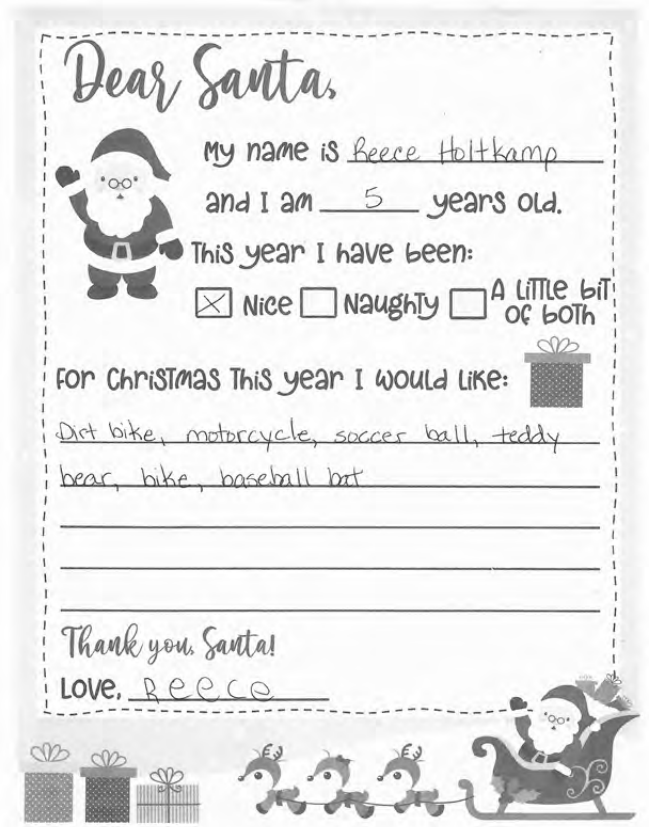 Dear Santa,
My name is Reece Holtkamp
and I am 5 years old.
This year I have been:
☒ Nice ☐ Naughty ☐ A little bit of both
For Christmas this year I would like:
Dirt bike, motorcycle, soccer ball, teddy
bear, bike, baseball bat
Thank you, Santa!
Love, Reece